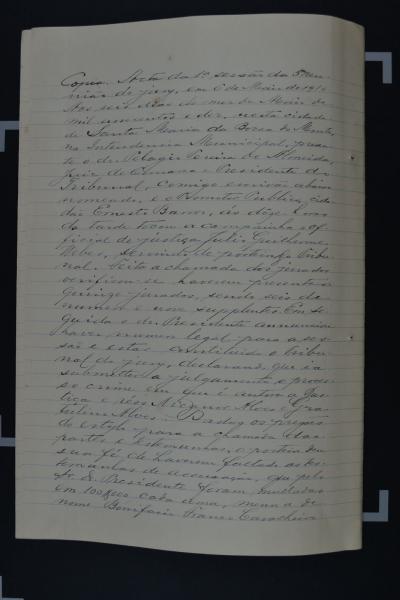 Copia. Acta da 1ª sessão da 5ª reu-
nião do jury, em 6 de Maio de 1910
Aos seis dias do mez de Maio de
mil novecentos e dez, nesta cidade
de Santa Maria da Bocca do Monte,
na Intendencia Municipal, presen-
te o dr Pelagio Pereira de Almeida,
juiz de Comarca e Presidente do
Tribunal, comigo escrivão abaixo
nomeado, e o Promotor Publico, cida-
dão Ernesto Barros, ás doze horas
da tarde tocou a campainha o of-
ficial de justiça Julio Guilherme
servindo de porteiro do Tribu-
nal. Feita a chamada dos jurados
verificou-se haverem presentes
quinze jurados, sendo seis do
numero e nove supplentes. Em se-
guida o dr. Presidente annunciou
haver numero legal para a ses-
são e estar constituido o tribu-
nal do jury, declarando que ia
submetter a julgamento o proces-
so crime em que é autora a Jus-
tiça e réos Alves e
Alves. os pregões
do estylo para a chamada das
partes e testemunhas, o porteiro deu
sua fé de haverem faltado as tes-
temunhas de accusação, que pelo
dr. Presidente foram multadas
em cada uma, menos a de
nome Bonifacio Franco